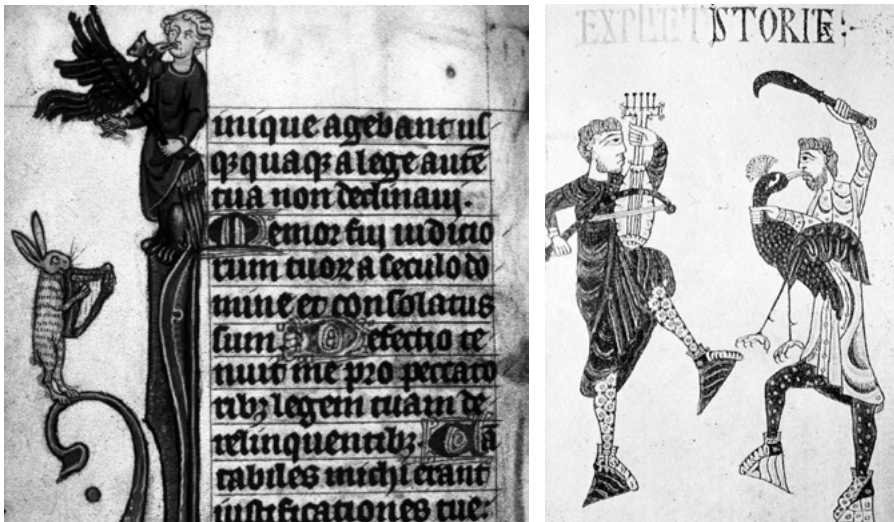 inique agebant us
qꝫ quaqꝫ a lege autē
tua non declinaui.
Memor fui iudicio
rum tuoꝝ a seculo do
mine et consolatus
sum. Defectio te
nuit me pro peccato
ribꝫ legem tuam de
relinquentibꝫ. Cā
tabiles michi erant
iustificationes tue:
EXPLICIT STORIE: